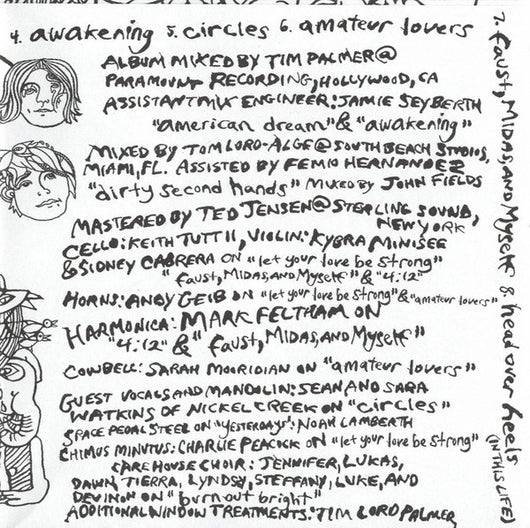 4. awakening 5. circles 6. amateur lovers
ALBUM MIXED BY TIM PALMER @
PARAMOUNT RECORDING, HOLLYWOOD, CA
ASSISTANT MIX ENGINEER: JAMIE SEYBERTH
"american dream" & "awakening"
MIXED BY TOM LORD-ALGE @ SOUTH BEACH STUDIOS,
MIAMI, FL. ASSISTED BY FEMIO HERNANDEZ
"dirty second hands" MIXED BY JOHN FIELDS
MASTERED BY TED JENSEN @ STERLING SOUND,
NEW YORK
CELLO: KEITH TUTT II, VIOLIN: KYBRA MINISEE
& SIDNEY CABRERA ON "let your love be strong"
"faust, MIDAS, AND Myself" & "4:12"
HORNS: ANDY GEIB ON "let your love be strong" & "amateur lovers"
HARMONICA: MARK FELTHAM ON
"4:12" & "faust, MIDAS, AND Myself"
COWBELL: SARAH MOORIDIAN ON "amateur lovers"
GUEST VOCALS AND MANDOLIN: SEAN AND SARA
WATKINS OF NICKEL CREEK ON "circles"
SPACE PEDAL STEEL ON "YESTERDAYS": NOAH LAMBERTH
CHIMUS MINUTUS: CHARLIE PEACOCK ON "let your love be strong"
CARE HOUSE CHOIR: JENNIFER, LUKAS,
DAWN, TIERRA, LYNDSY, STEFFANY, LUKE, AND
DEVINON ON "burn out bright"
ADDITIONAL WINDOW TREATMENTS: TIM LORD PALMER
7. faust, MIDAS, AND Myself 8. head over heels
(IN THIS LIFE)